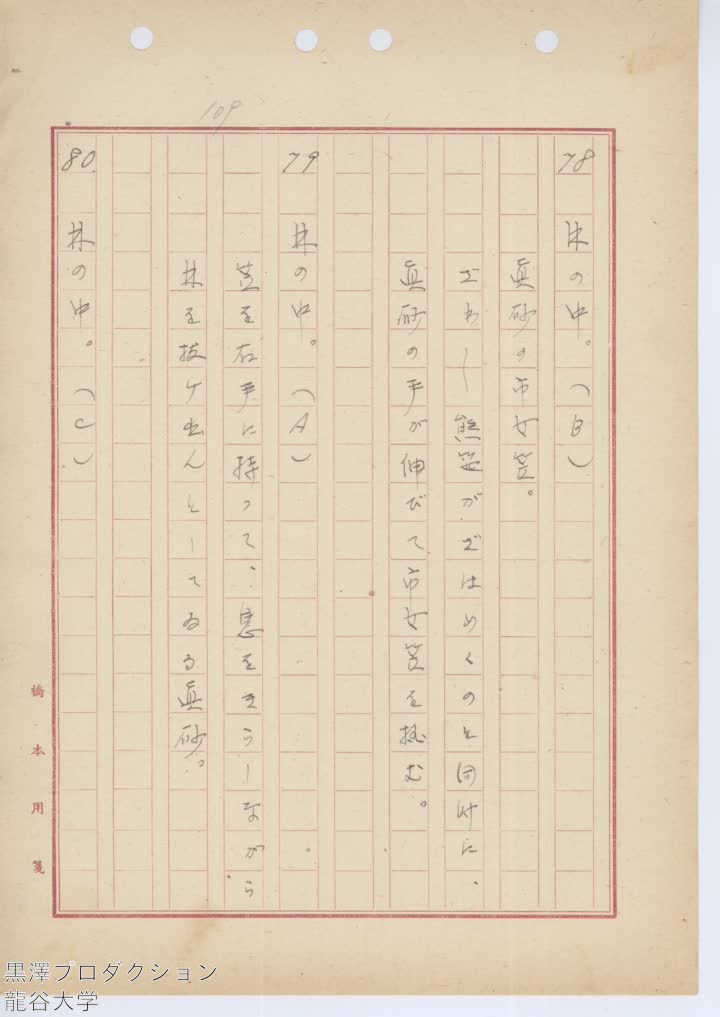 109
78 林の中。(B)
真砂の市女笠。
ざわ〳〵熊笹がざはめくのと同时に、
真砂の手が伸びて市女笠を掴む。
79 林の中。(A)
笠を右手に持って、息をきらしながら
林を抜け出んとしてゐる真砂。
80. 林の中。(C)
橋本用箋
黒澤プロダクション
龍谷大学